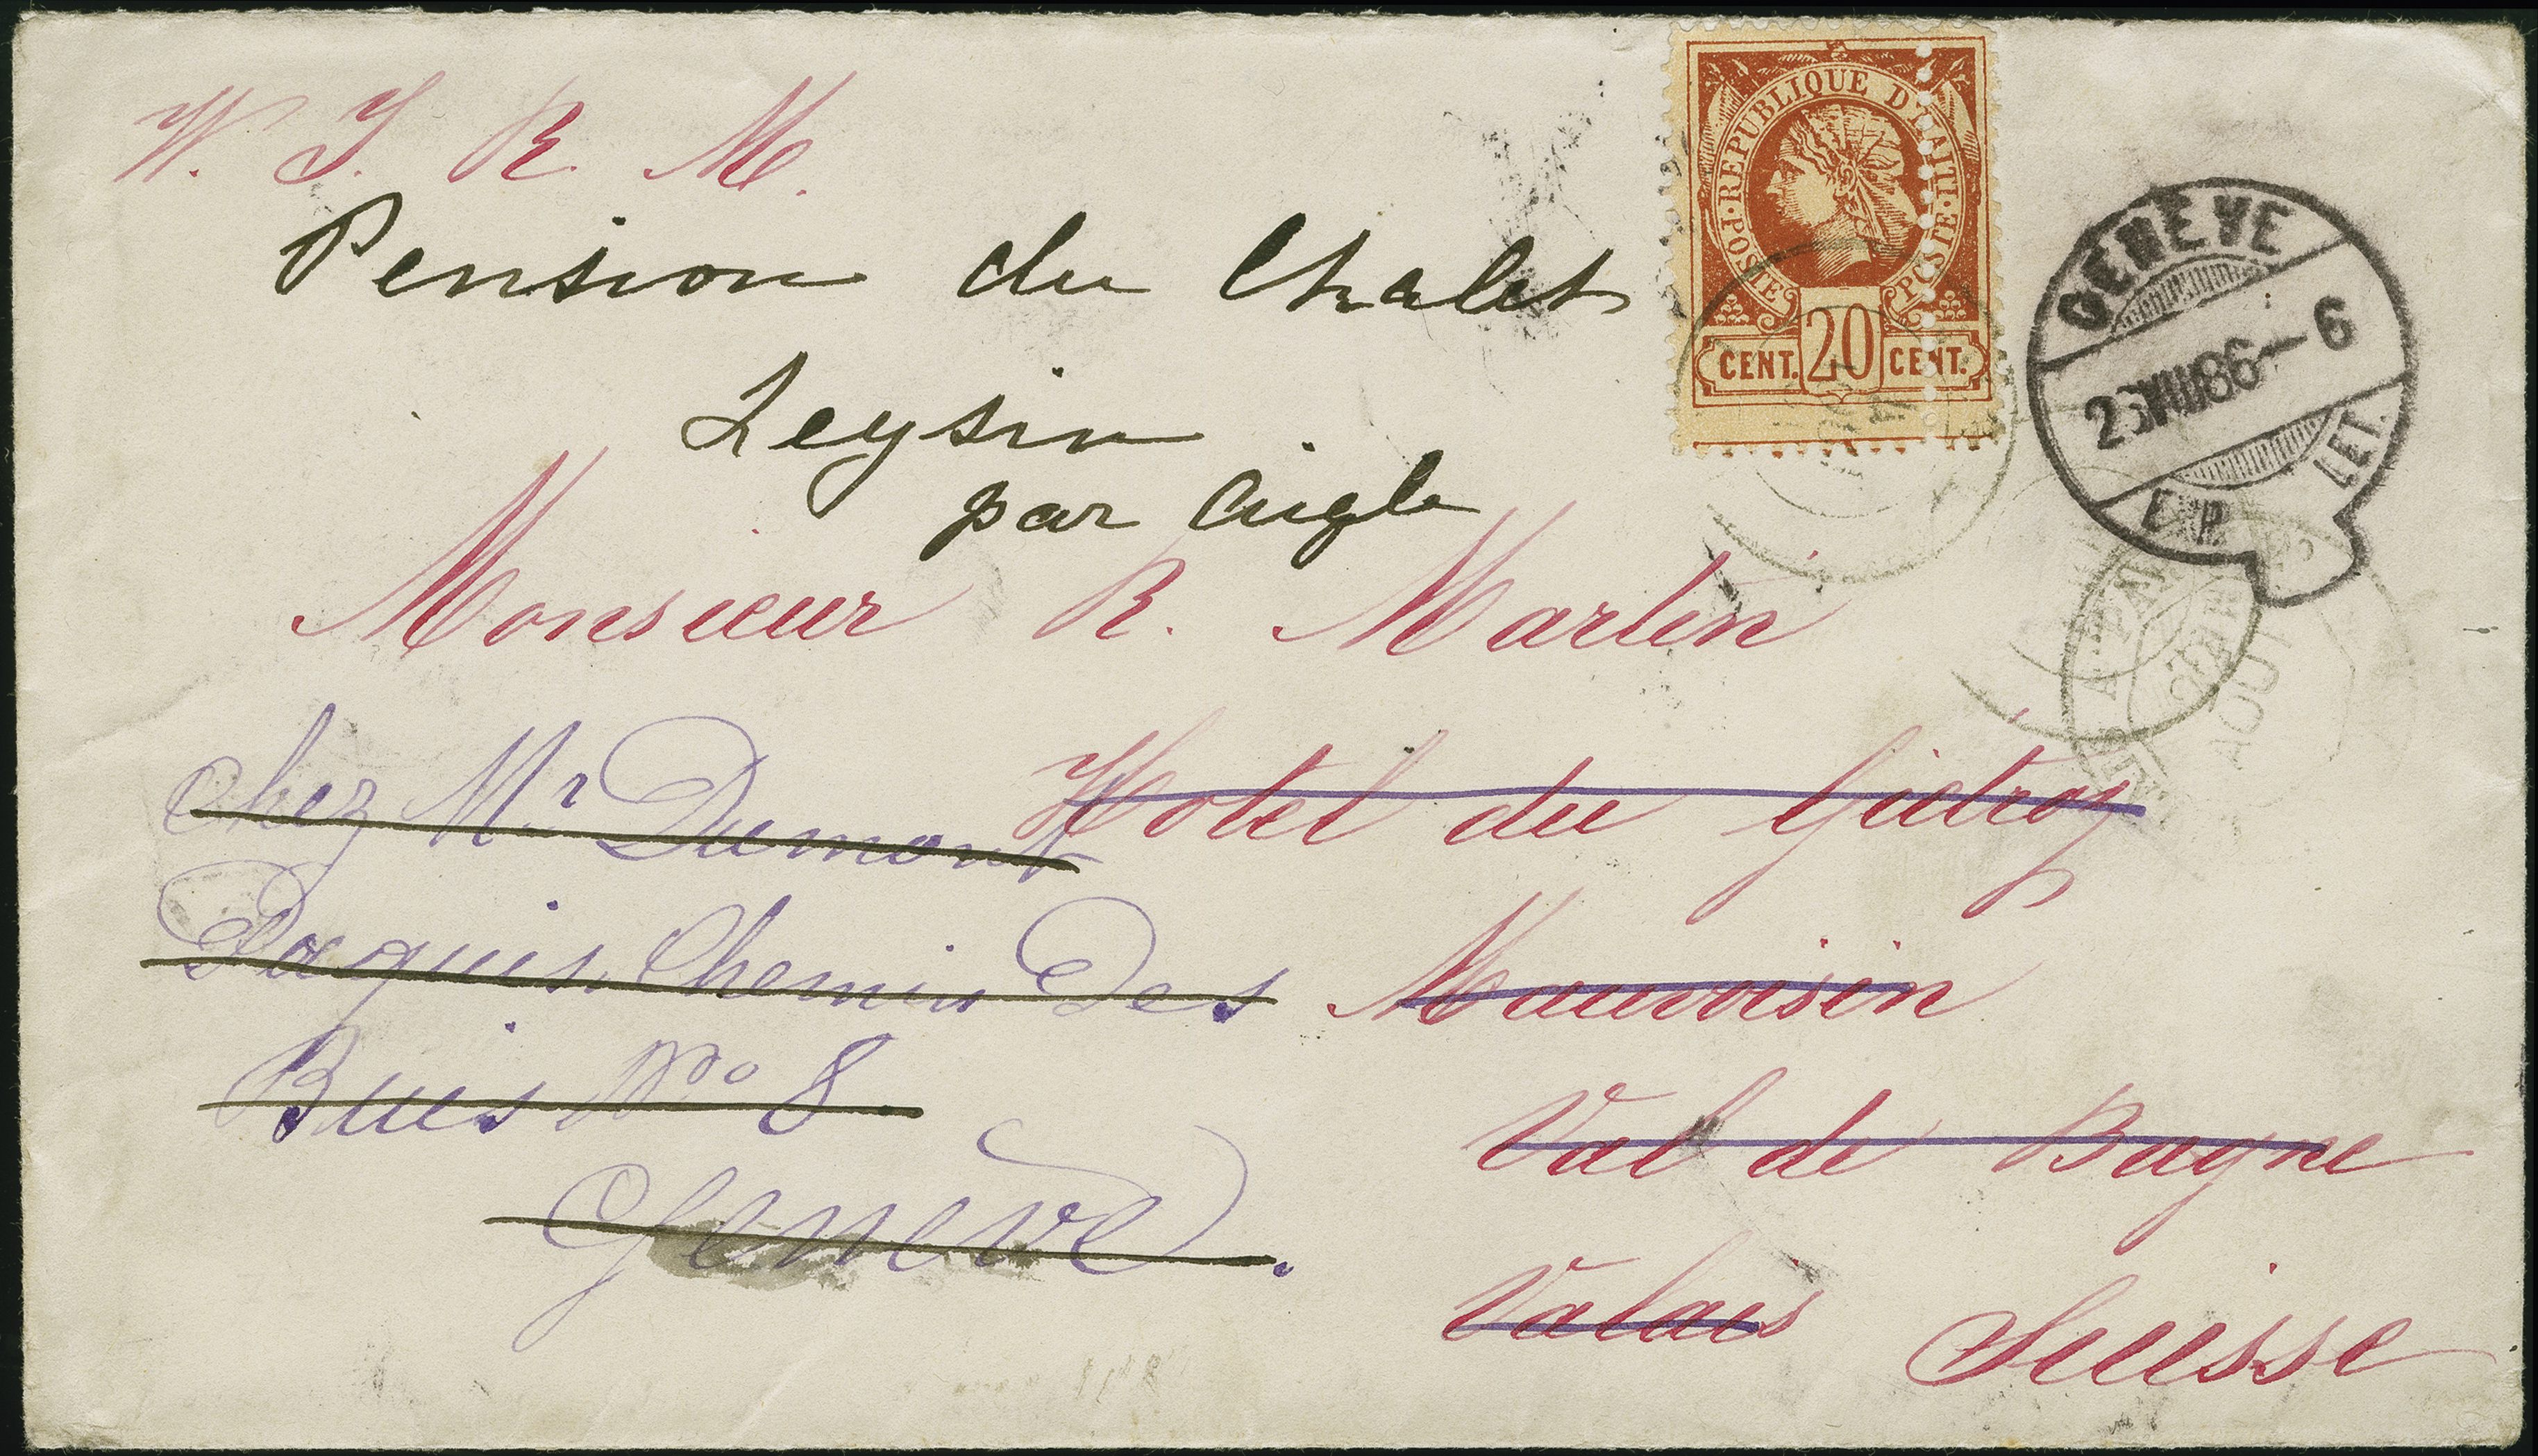 W. I. R. M.
Pension du Chalet
Leysin
par Aigle
Monsieur R. Martin
Hotel du Giétroz
Mauvoisin
Val de Bagne
Valais Suisse
chez Mr Dumont
Paquis Chemin Des
Buis No 8.
Genève.
POSTE · REPUBLIQUE D'HAITI · POSTE
CENT. 20 CENT.
GENÈVE
VIII 86 - 6
EXP. LET.
AOUT